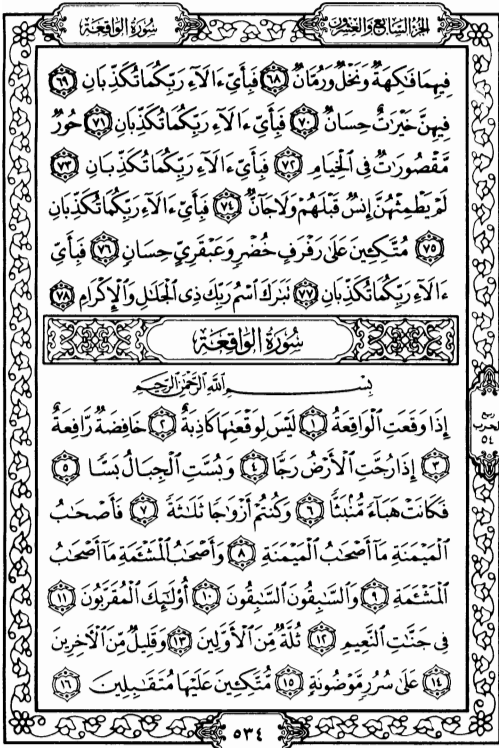 سُورَةُ الوَاقِعَةِ
الجُزْءُ السَّابِعُ وَالعِشْرُونَ
فِيهِمَا فَٰكِهَةٌ وَنَخْلٌ وَرُمَّانٌ ٦٨ فَبِأَيِّ ءَالَآءِ رَبِّكُمَا تُكَذِّبَانِ ٦٩
فِيهِنَّ خَيْرَٰتٌ حِسَانٌ ٧٠ فَبِأَيِّ ءَالَآءِ رَبِّكُمَا تُكَذِّبَانِ ٧١ حُورٌ
مَّقْصُورَٰتٌ فِى الْخِيَامِ ٧٢ فَبِأَيِّ ءَالَآءِ رَبِّكُمَا تُكَذِّبَانِ ٧٣
لَمْ يَطْمِثْهُنَّ إِنسٌ قَبْلَهُمْ وَلَا جَآنٌّ ٧٤ فَبِأَيِّ ءَالَآءِ رَبِّكُمَا تُكَذِّبَانِ
٧٥ مُتَّكِـِٔينَ عَلَىٰ رَفْرَفٍ خُضْرٍ وَعَبْقَرِيٍّ حِسَانٍ ٧٦ فَبِأَيِّ
ءَالَآءِ رَبِّكُمَا تُكَذِّبَانِ ٧٧ تَبَٰرَكَ اسْمُ رَبِّكَ ذِى الْجَلَٰلِ وَالْإِكْرَامِ ٧٨
سُورَةُ الوَاقِعَةِ
بِسْمِ اللَّهِ الرَّحْمَٰنِ الرَّحِيمِ
إِذَا وَقَعَتِ الْوَاقِعَةُ ١ لَيْسَ لِوَقْعَتِهَا كَاذِبَةٌ ٢ خَافِضَةٌ رَّافِعَةٌ
٣ إِذَا رُجَّتِ الْأَرْضُ رَجًّا ٤ وَبُسَّتِ الْجِبَالُ بَسًّا ٥
فَكَانَتْ هَبَآءً مُّنۢبَثًّا ٦ وَكُنتُمْ أَزْوَٰجًا ثَلَٰثَةً ٧ فَأَصْحَٰبُ
الْمَيْمَنَةِ مَآ أَصْحَٰبُ الْمَيْمَنَةِ ٨ وَأَصْحَٰبُ الْمَشْـَٔمَةِ مَآ أَصْحَٰبُ
الْمَشْـَٔمَةِ ٩ وَالسَّٰبِقُونَ السَّٰبِقُونَ ١٠ أُو۟لَٰٓئِكَ الْمُقَرَّبُونَ ١١
فِى جَنَّٰتِ النَّعِيمِ ١٢ ثُلَّةٌ مِّنَ الْأَوَّلِينَ ١٣ وَقَلِيلٌ مِّنَ الْآخِرِينَ
١٤ عَلَىٰ سُرُرٍ مَّوْضُونَةٍ ١٥ مُّتَّكِـِٔينَ عَلَيْهَا مُتَقَٰبِلِينَ ١٦
ربع
الحزب
٥٤
٥٣٤